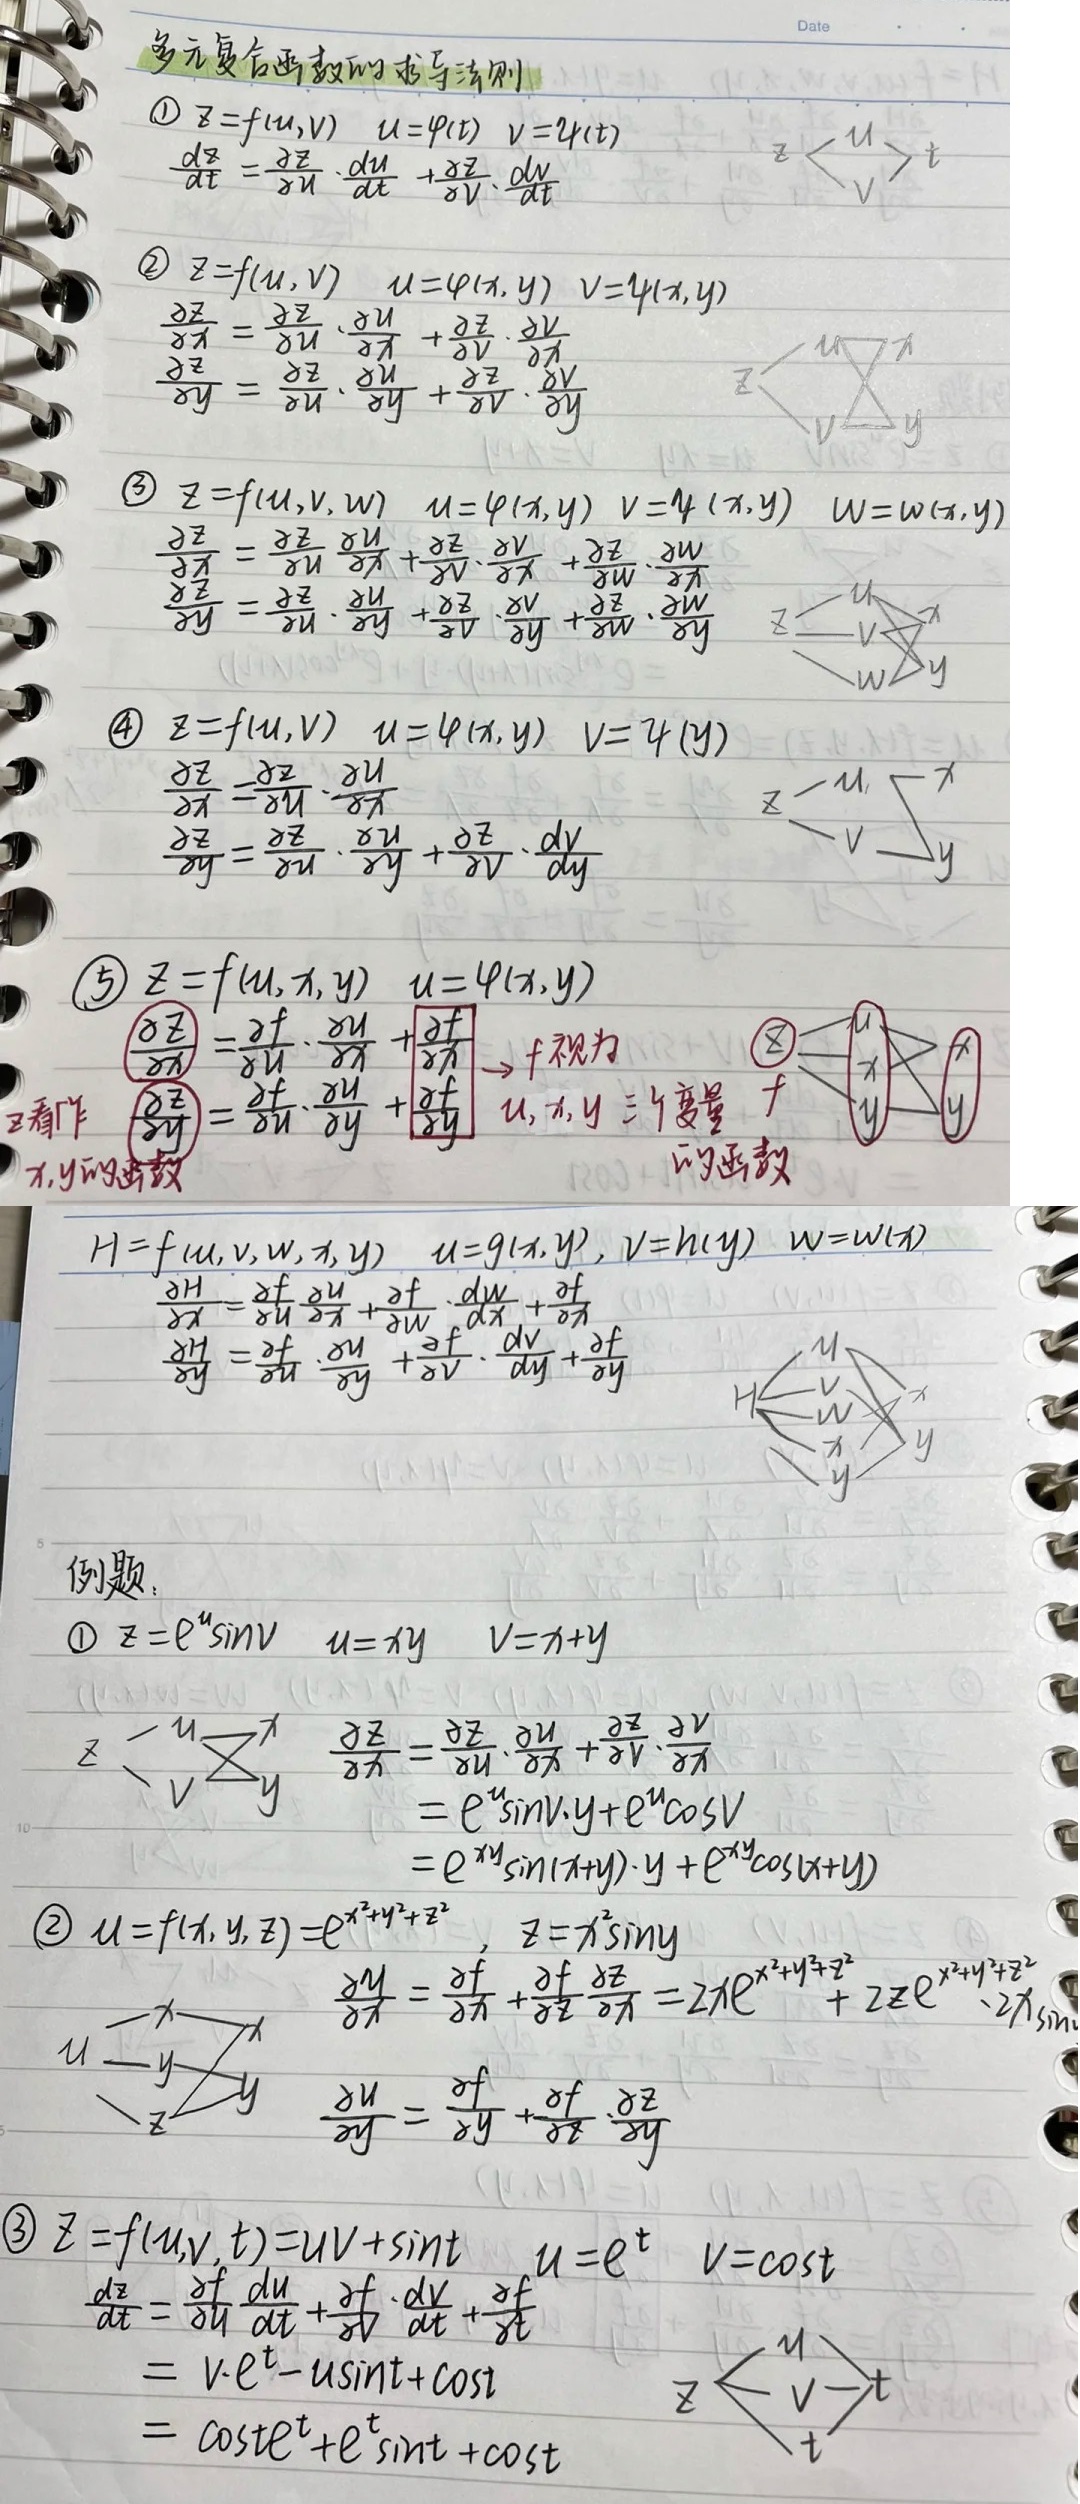 Date
多元复合函数的求导法则
① z=f(u,v) u=φ(t) v=ψ(t)
dz/dt = ∂z/∂u · du/dt + ∂z/∂v · dv/dt
z u v t
② z=f(u,v) u=φ(x,y) v=ψ(x,y)
∂z/∂x = ∂z/∂u · ∂u/∂x + ∂z/∂v · ∂v/∂x
∂z/∂y = ∂z/∂u · ∂u/∂y + ∂z/∂v · ∂v/∂y
z u v x y
③ z=f(u,v,w) u=φ(x,y) v=ψ(x,y) w=w(x,y)
∂z/∂x = ∂z/∂u ∂u/∂x + ∂z/∂v · ∂v/∂x + ∂z/∂w · ∂w/∂x
∂z/∂y = ∂z/∂u · ∂u/∂y + ∂z/∂v · ∂v/∂y + ∂z/∂w · ∂w/∂y
z u v w x y
④ z=f(u,v) u=φ(x,y) v=ψ(y)
∂z/∂x = ∂z/∂u · ∂u/∂x
∂z/∂y = ∂z/∂u · ∂u/∂y + ∂z/∂v · dv/dy
z u v x y
⑤ z=f(u,x,y) u=φ(x,y)
∂z/∂x = ∂f/∂u · ∂u/∂x + ∂f/∂x → f视为
∂z/∂y = ∂f/∂u · ∂u/∂y + ∂f/∂y u,x,y三个变量
的函数
z看作
x,y的函数
z f u x y x y
H=f(u,v,w,x,y) u=g(x,y), v=h(y) w=w(x)
∂H/∂x = ∂f/∂u ∂u/∂x + ∂f/∂w · dw/dx + ∂f/∂x
∂H/∂y = ∂f/∂u · ∂u/∂y + ∂f/∂v · dv/dy + ∂f/∂y
H u v w x y x y
5
例题:
① z=e^u sinv u=xy v=x+y
z u v x y
∂z/∂x = ∂z/∂u · ∂u/∂x + ∂z/∂v · ∂v/∂x
=e^u sinv·y+e^u cosv
10
=e^xy sin(x+y)·y+e^xy cos(x+y)
② u=f(x,y,z)=e^(x²+y²+z²), z=x²siny
∂u/∂x = ∂f/∂x + ∂f/∂z ∂z/∂x = 2xe^(x²+y²+z²) + 2ze^(x²+y²+z²)·2x
u x y z x y
∂u/∂y = ∂f/∂y + ∂f/∂z · ∂z/∂y
③ z=f(u,v,t)=uv+sint u=e^t v=cost
dz/dt = ∂f/∂u du/dt + ∂f/∂v · dv/dt + ∂f/∂t
= v·e^t-usint+cost
= coste^t+e^t sint+cost
z u v t t